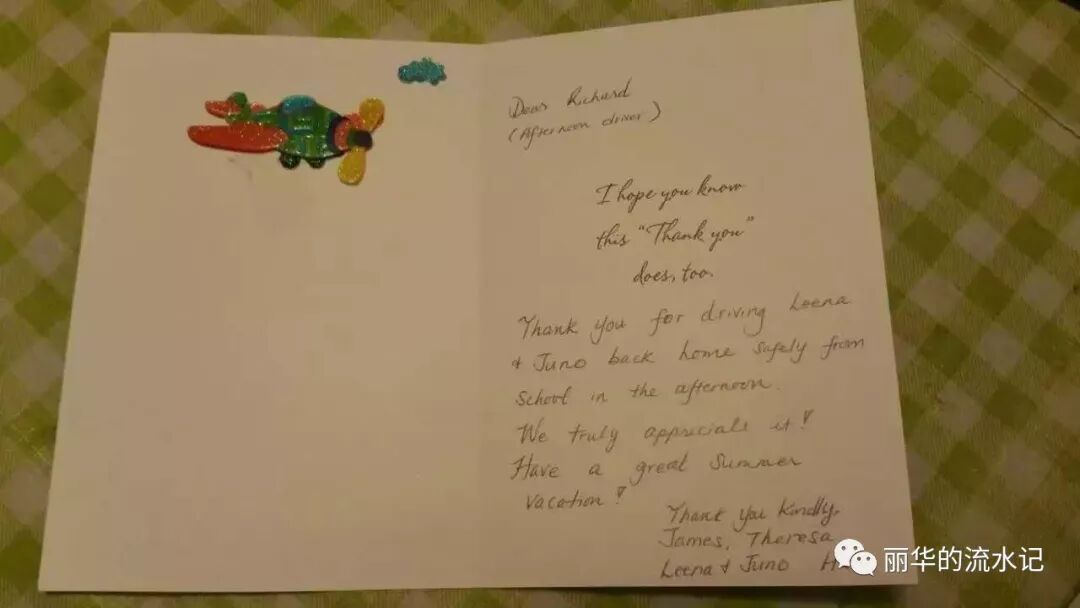 Dear Richard
(Afternoon driver)
I hope you know
this "Thank you"
does, too.
Thank you for driving Leena
& Juno back home safely from
school in the afternoon.
We truly appricials it!
Have a great summer
vacation!
Thank you kindly,
James, Theresa
Leena & Juno H
丽华的流水记